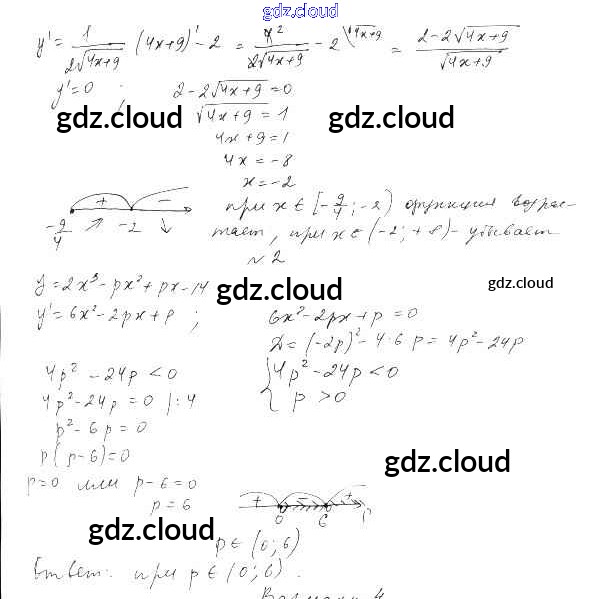 gdz.cloud
y' = 1/(2√(4x+9)) (4x+9)' - 2 = 4²/(2√(4x+9)) - 2 \√(4x+9) = (2-2√(4x+9))/√(4x+9)
y'=0 ; 2-2√(4x+9)=0
gdz.cloud gdz.cloud
√(4x+9) = 1
4x+9=1
4x=-8
x=-2
+ -
-9/4 ↗ -2 ↘
при x∈[-9/4; -2) функция возрас-
тает, при x∈(-2; +∞) - убывает
№2
y=2x³-px²+px-14 gdz.cloud gdz.cloud
y'=6x²-2px+p ; 6x²-2px+p=0
D=(-2p)²-4·6p=4p²-24p
4p²-24p<0 { 4p²-24p<0
4p²-24p=0 |:4 p>0
p²-6p=0
p(p-6)=0 gdz.cloud
p=0 или p-6=0
p=6
+ - +
0 6 p
gdz.cloud
p∈(0;6)
Ответ: при p∈(0;6).
Вариант 4